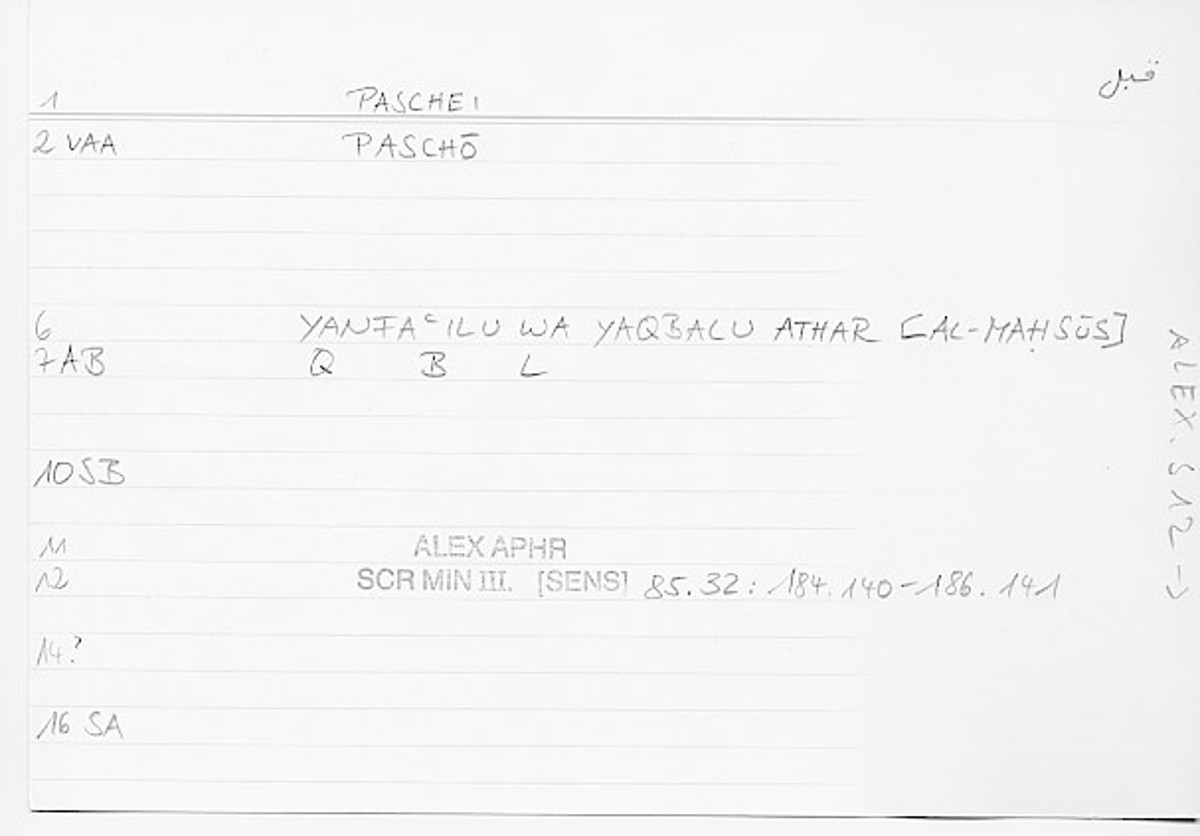 قبل
1 PASCHEI
2 VAA PASCHŌ
6 YANFAʿILU WA YAQBALU ATHAR [AL-MAḤSŪS]
7 AB Q B L
10 SB
11 ALEX APHR
12 SCR MIN III. [SENS] 85.32 : 184.140-186.141
14?
16 SA
ALEX. S 12 →